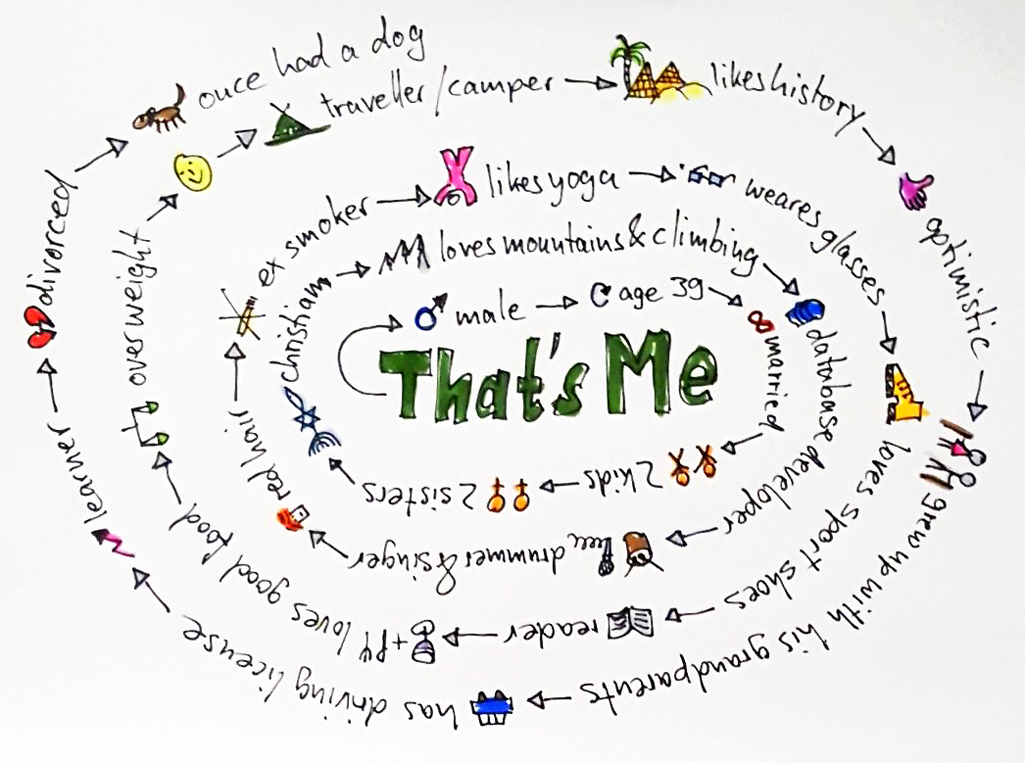 That's Me
male
age 39
married
2 kids
2 sisters
christian
loves mountains & climbing
database developer
drummer & singer
red hair
ex smoker
likes yoga
weares glasses
loves sport shoes
reader
loves good food
overweight
traveller/camper
likes history
optimistic
grew up with his grandparents
has driving license
learner
divorced
once had a dog